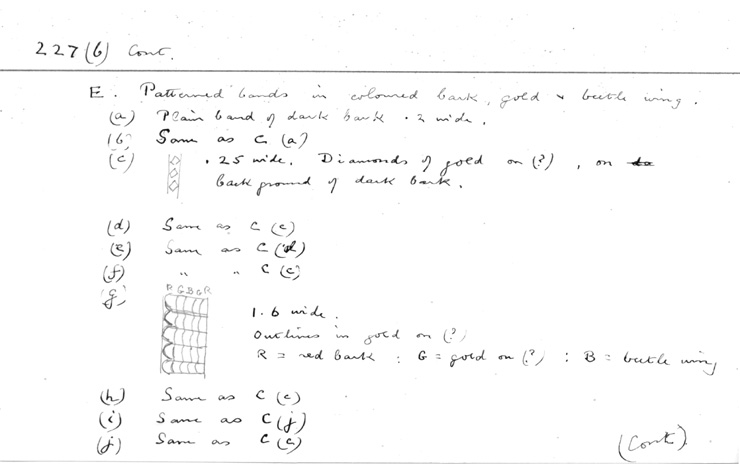 227 (6) Cont.
E. Patterned bands in coloured bark, gold & beetle wing.
(a) Plain band of dark bark .2 wide.
(b) Same as C (a)
(c) .25 wide. Diamonds of gold on (?), on
background of dark bark.
(d) Same as C (c)
(e) Same as C (d)
(f) " " C (c)
(g) R G B G R
1.6 wide.
Outlines in gold on (?)
R = red bark : G = gold on (?) : B = beetle wing
(h) Same as C (c)
(i) Same as C (j)
(j) Same as C (c)
(Cont.)